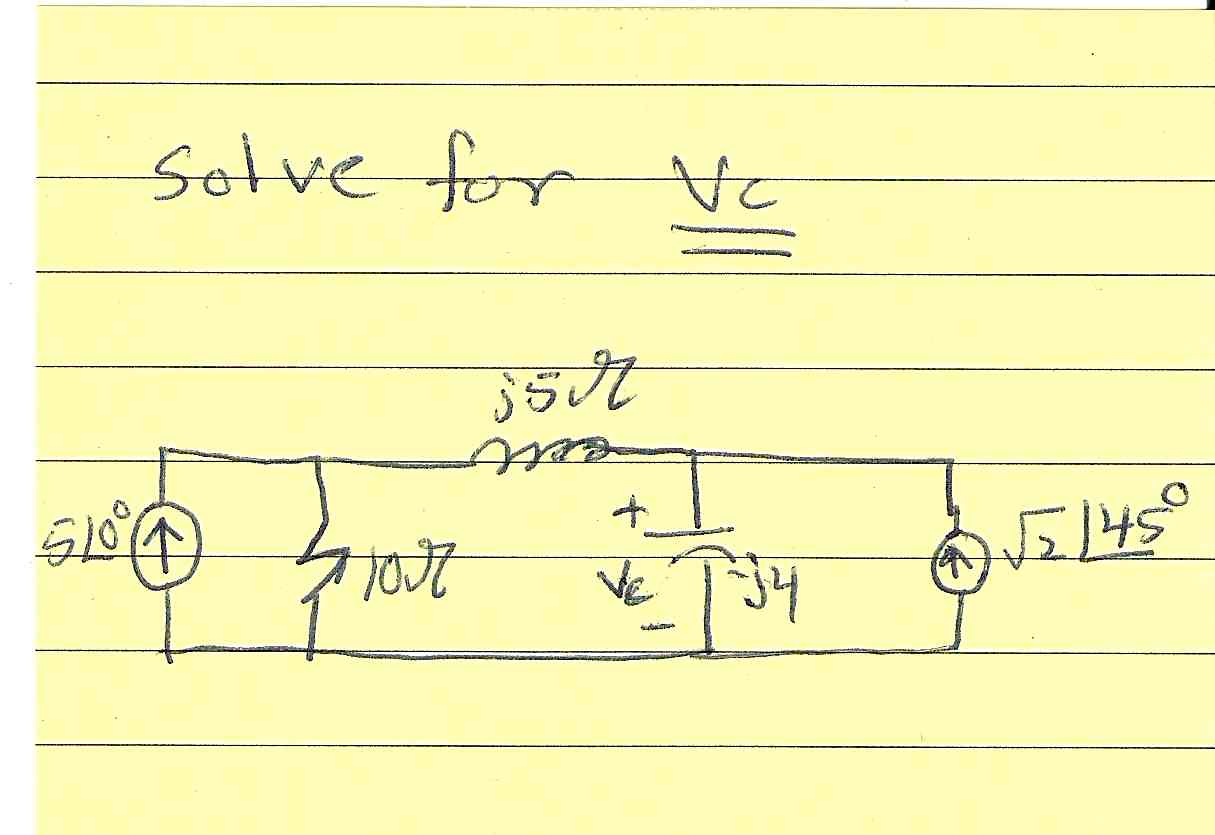 Solve for Vc
j5Ω
5∠0°
10Ω
+
Vc
-
-j4
√2 ∠45°